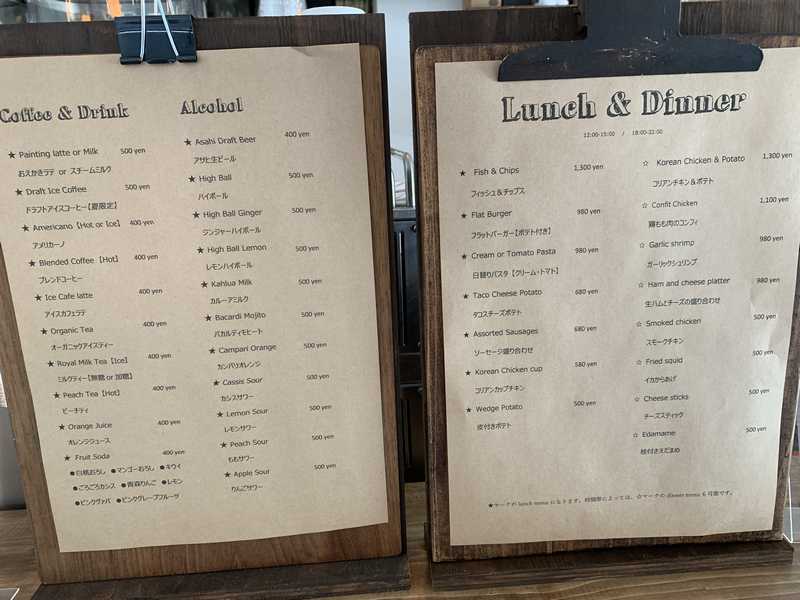 Coffee & Drink
★ Painting latte or Milk 500 yen
おえかきラテ or スチームミルク
★ Draft Ice Coffee 500 yen
ドラフトアイスコーヒー【夏限定】
★ Americano【Hot or Ice】 400 yen
アメリカーノ
★ Blended Coffee【Hot】 400 yen
ブレンドコーヒー
★ Ice Cafe latte 400 yen
アイスカフェラテ
★ Organic Tea 400 yen
オーガニックアイスティー
★ Royal Milk Tea【Ice】 400 yen
ミルクティー【無糖 or 加糖】
★ Peach Tea【Hot】 400 yen
ピーチティ
★ Orange Juice 400 yen
オレンジジュース
★ Fruit Soda 400 yen
●白桃おろし ●マンゴーおろし ●キウイ
●ごろごろカシス ●青森りんご ●レモン
●ピンクグァバ ●ピンクグレープフルーツ
Alcohol
★ Asahi Draft Beer 400 yen
アサヒ生ビール
★ High Ball 500 yen
ハイボール
★ High Ball Ginger 500 yen
ジンジャーハイボール
★ High Ball Lemon 500 yen
レモンハイボール
★ Kahlua Milk 500 yen
カルーアミルク
★ Bacardi Mojito 500 yen
バカルディモヒート
★ Campari Orange 500 yen
カンパリオレンジ
★ Cassis Sour 500 yen
カシスサワー
★ Lemon Sour 500 yen
レモンサワー
★ Peach Sour 500 yen
ももサワー
★ Apple Sour 500 yen
りんごサワー
Lunch & Dinner
12:00-15:00 / 18:00-22:00
★ Fish & Chips 1,300 yen
フィッシュ&チップス
★ Flat Burger 980 yen
フラットバーガー【ポテト付き】
★ Cream or Tomato Pasta 980 yen
日替りパスタ【クリーム・トマト】
★ Taco Cheese Potato 680 yen
タコスチーズポテト
★ Assorted Sausages 680 yen
ソーセージ盛り合わせ
★ Korean Chicken cup 580 yen
コリアンカップチキン
★ Wedge Potato 500 yen
皮付きポテト
☆ Korean Chicken & Potato 1,300 yen
コリアンチキン&ポテト
☆ Confit Chicken 1,100 yen
鶏もも肉のコンフィ
☆ Garlic shrimp 980 yen
ガーリックシュリンプ
☆ Ham and cheese platter 980 yen
生ハムとチーズの盛り合わせ
☆ Smoked chicken 500 yen
スモークチキン
☆ Fried squid 500 yen
イカからあげ
☆ Cheese sticks 500 yen
チーズスティック
☆ Edamame 500 yen
枝付きえだまめ
★マークが lunch menu になります。時間帯によっては、☆マークの dinner menu も可能です。